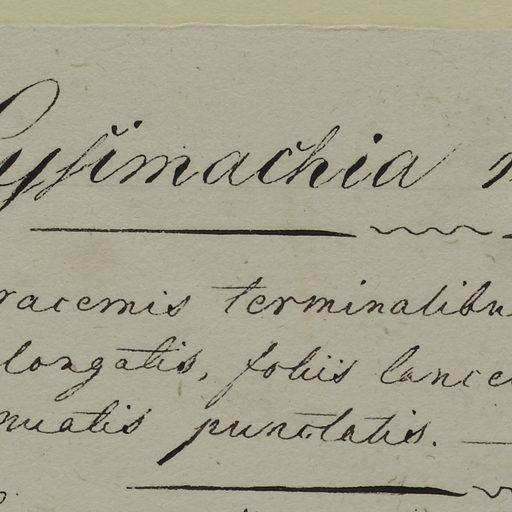 Lysimachia
racemis terminalibu
longatis, foliis lance
nuatis punctatis.